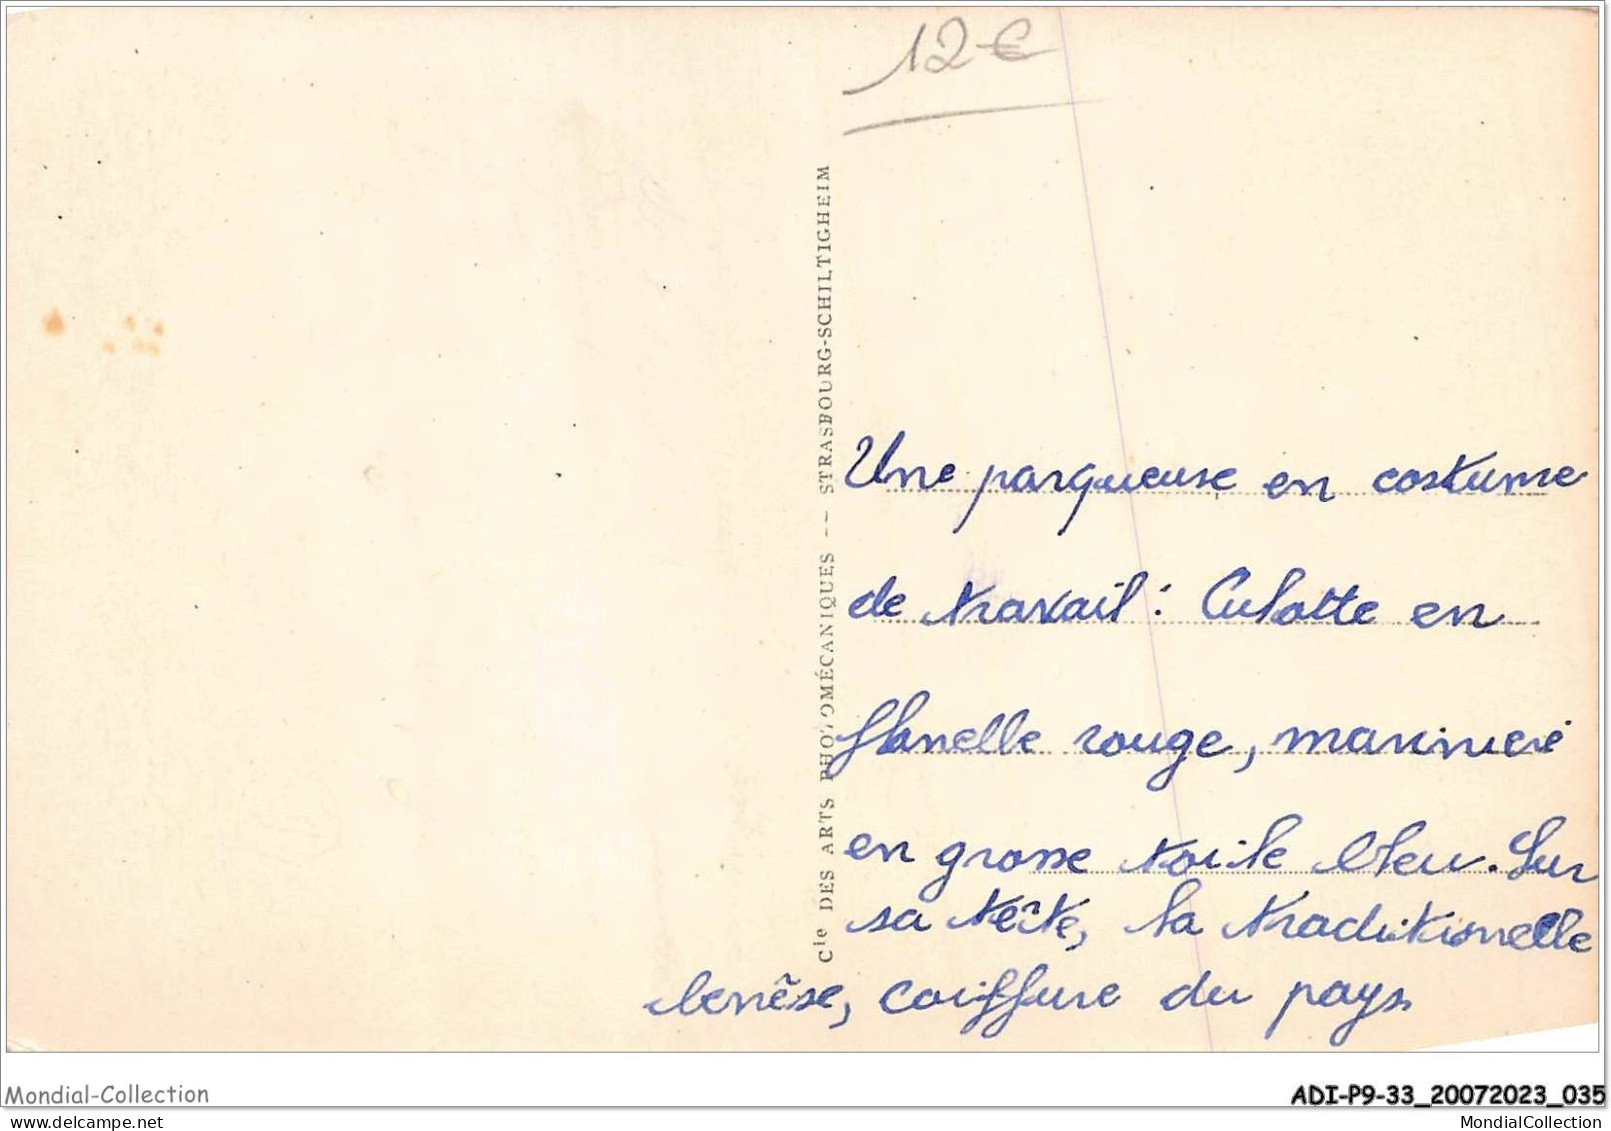 12 €
Cie DES ARTS PHOTOMÉCANIQUES -- STRASBOURG-SCHILTIGHEIM
Une parqueuse en costume
de travail : Culotte en
flanelle rouge, marinière
en grosse toile bleu. Sur
sa tête, la traditionnelle
benèse, coiffure du pays
Mondial-Collection
ADI-P9-33_20072023_035
delcampe.net
MondialCollection